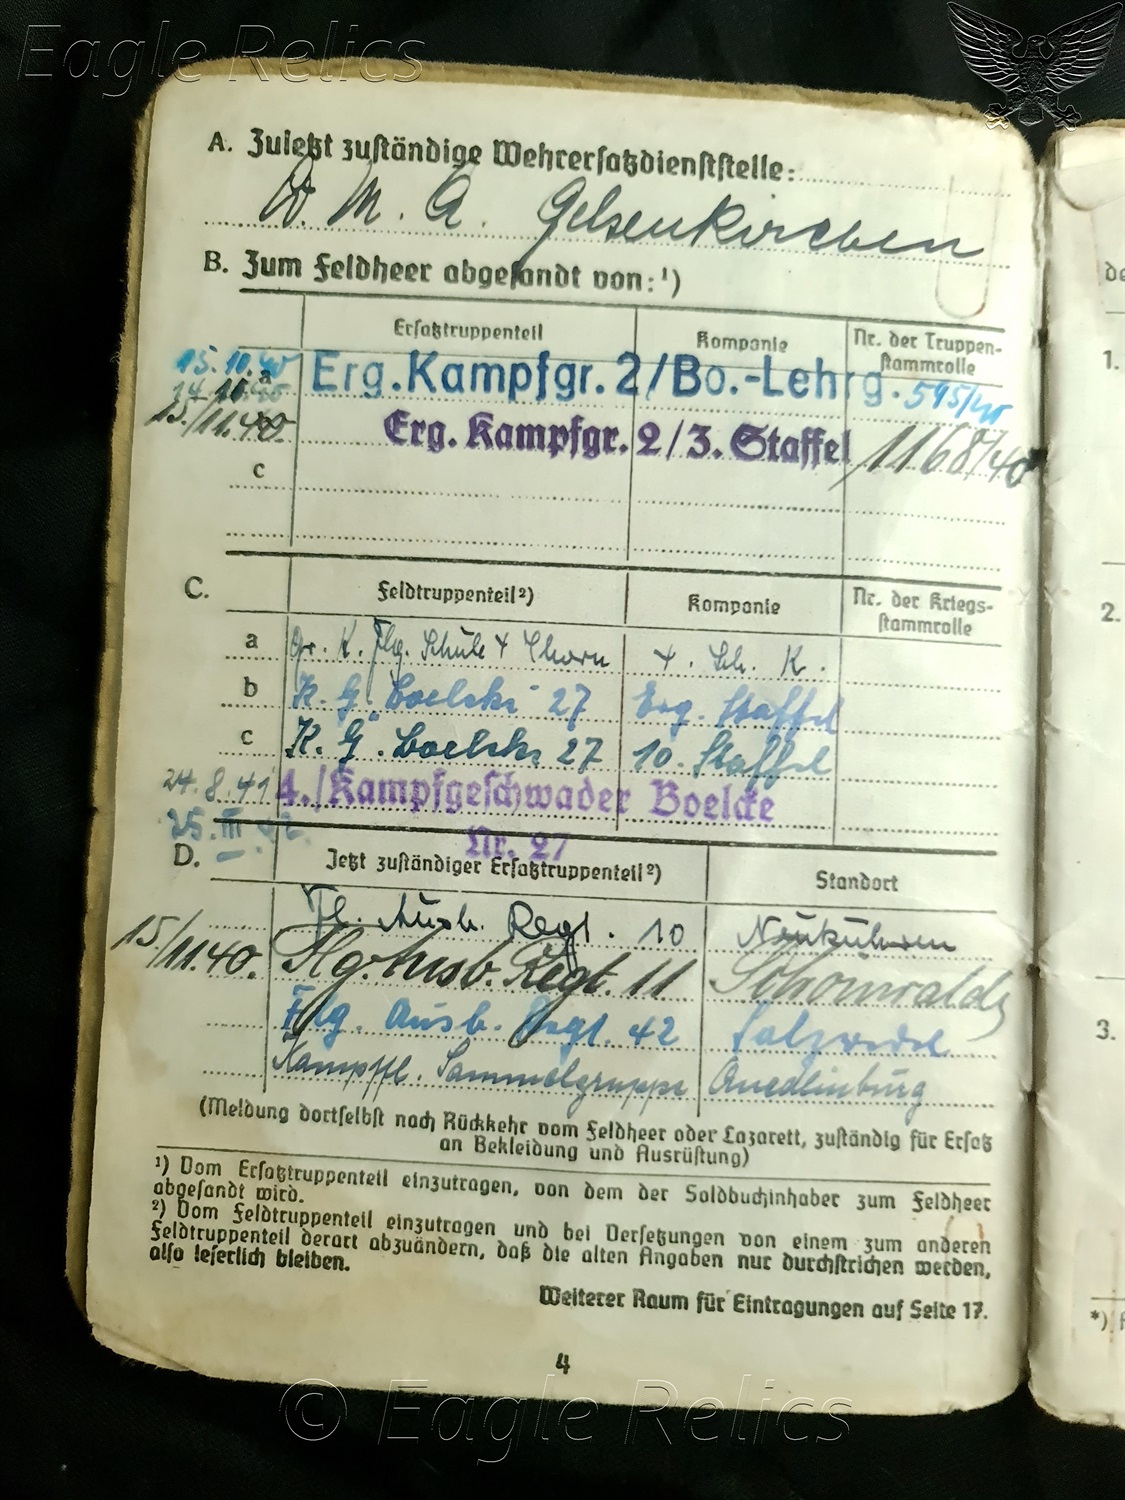 Eagle Relics
A. Zuletzt zuständige Wehrersatzdienststelle:
W. M. A. Gelsenkirchen
B. Zum Feldheer abgesandt von: ¹)
Ersatztruppenteil Kompanie Nr. der Truppen-
stammrolle
15.10.40 a Erg.Kampfgr. 2/Bo.-Lehrg. 595/40
15/11.40. Erg. Kampfgr. 2/3. Staffel 1168/40
c
C. Feldtruppenteil²) Kompanie Nr. der Kriegs-
stammrolle
a Gr. K. Flg. Schule 4 Thorn 4. Sch. K.
b K. G. Boelcke 27 Erg. Staffel
c K. G. Boelcke 27 10. Staffel
24.8.41 4./Kampfgeschwader Boelcke
25.III.42. Nr. 27
D. Jetzt zuständiger Ersatztruppenteil²) Standort
Fl. Ausb. Regt. 10 Neukuhren
15/11.40. Flg. Ausb. Regt. 11 Schönwalde
Flg. Ausb. Regt. 42 Salzwedel
Kampffl. Sammelgruppe Quedlinburg
(Meldung dortselbst nach Rückkehr vom Feldheer oder Lazarett, zuständig für Ersatz
an Bekleidung und Ausrüstung)
¹) Vom Ersatztruppenteil einzutragen, von dem der Soldbuchinhaber zum Feldheer
abgesandt wird.
²) Vom Feldtruppenteil einzutragen und bei Versetzungen von einem zum anderen
Feldtruppenteil derart abzuändern, daß die alten Angaben nur durchstrichen werden,
also leserlich bleiben.
Weiterer Raum für Eintragungen auf Seite 17.
4
de
1.
2.
3.
*)
© Eagle Relics